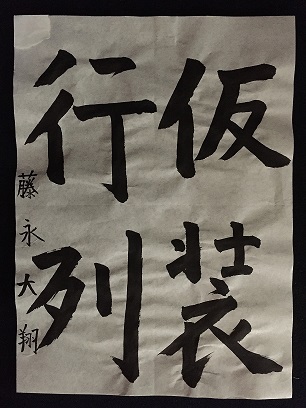 仮装
行列
藤永大翔